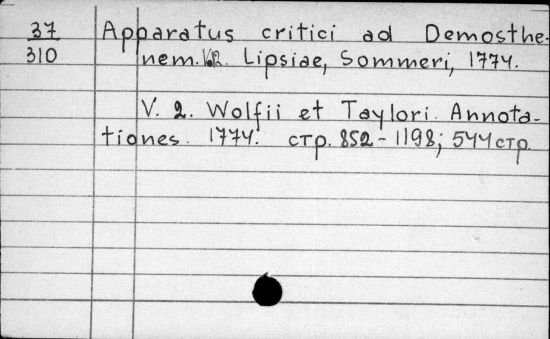 37
310
Apparatus critici ad Demosthe-
nem. V.2. Lipsiae, Sommeri, 1774.
V. 2. Wolfii et Taylori. Annota-
tiones. 1774. стр. 852-1198; 544 стр.